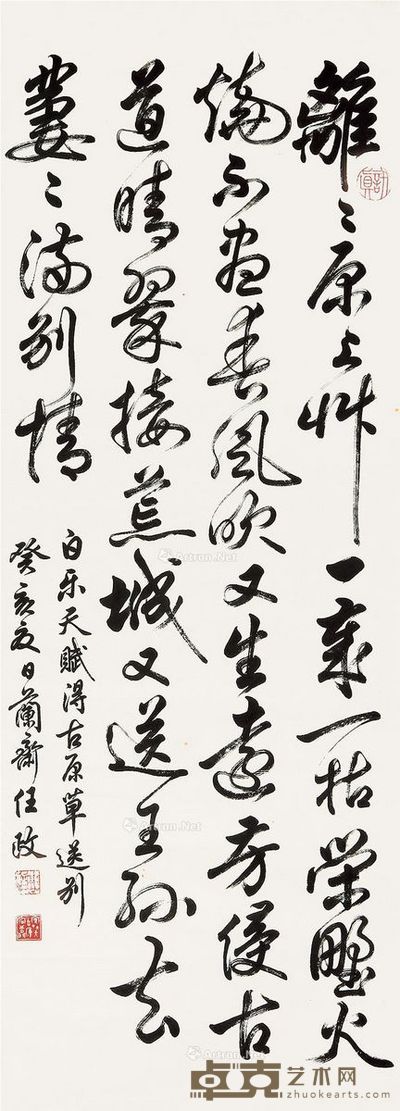 離〻原上艸一歲一枯榮野火
燒不盡春風吹又生遠芳侵古
道晴翠接荒城又送王孫去
萋〻滿別情
白乐天賦得古原草送別
癸亥夏日蘭齋任政
Artron.Net
卓克艺术网
www.zhuokearts.com